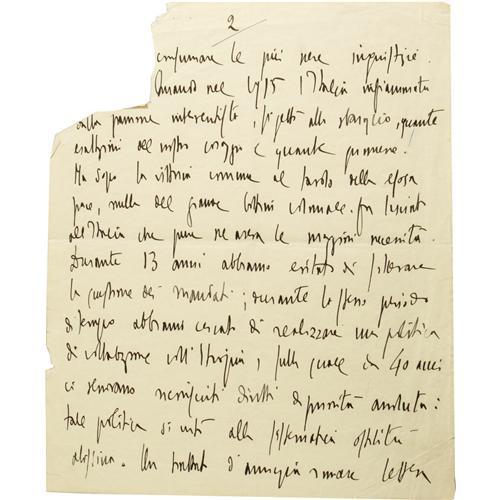 2
consumare le più nere ingiustizie.
Quando nel 1915 l'Italia infiammata
dalla passione interventista, si gettò allo sbaraglio, quante
esaltazioni del nostro coraggio e quante promesse.
Ma dopo la vittoria comune al tavolo della esosa
pace, nulla del grande bottino coloniale fu lasciato
all'Italia che pure ne aveva le maggiori necessità.
Durante 13 anni abbiamo evitato di sollevare
la questione dei mandati; durante lo stesso periodo
di tempo abbiamo cercato di realizzare una politica
di collaborazione coll'Etiopia, sulla quale da 40 anni
ci venivano riconosciuti diritti di priorità assoluta:
tale politica si urtò alla sistematica ostilità
abissina. Un trattato d'amicizia rimase lettera